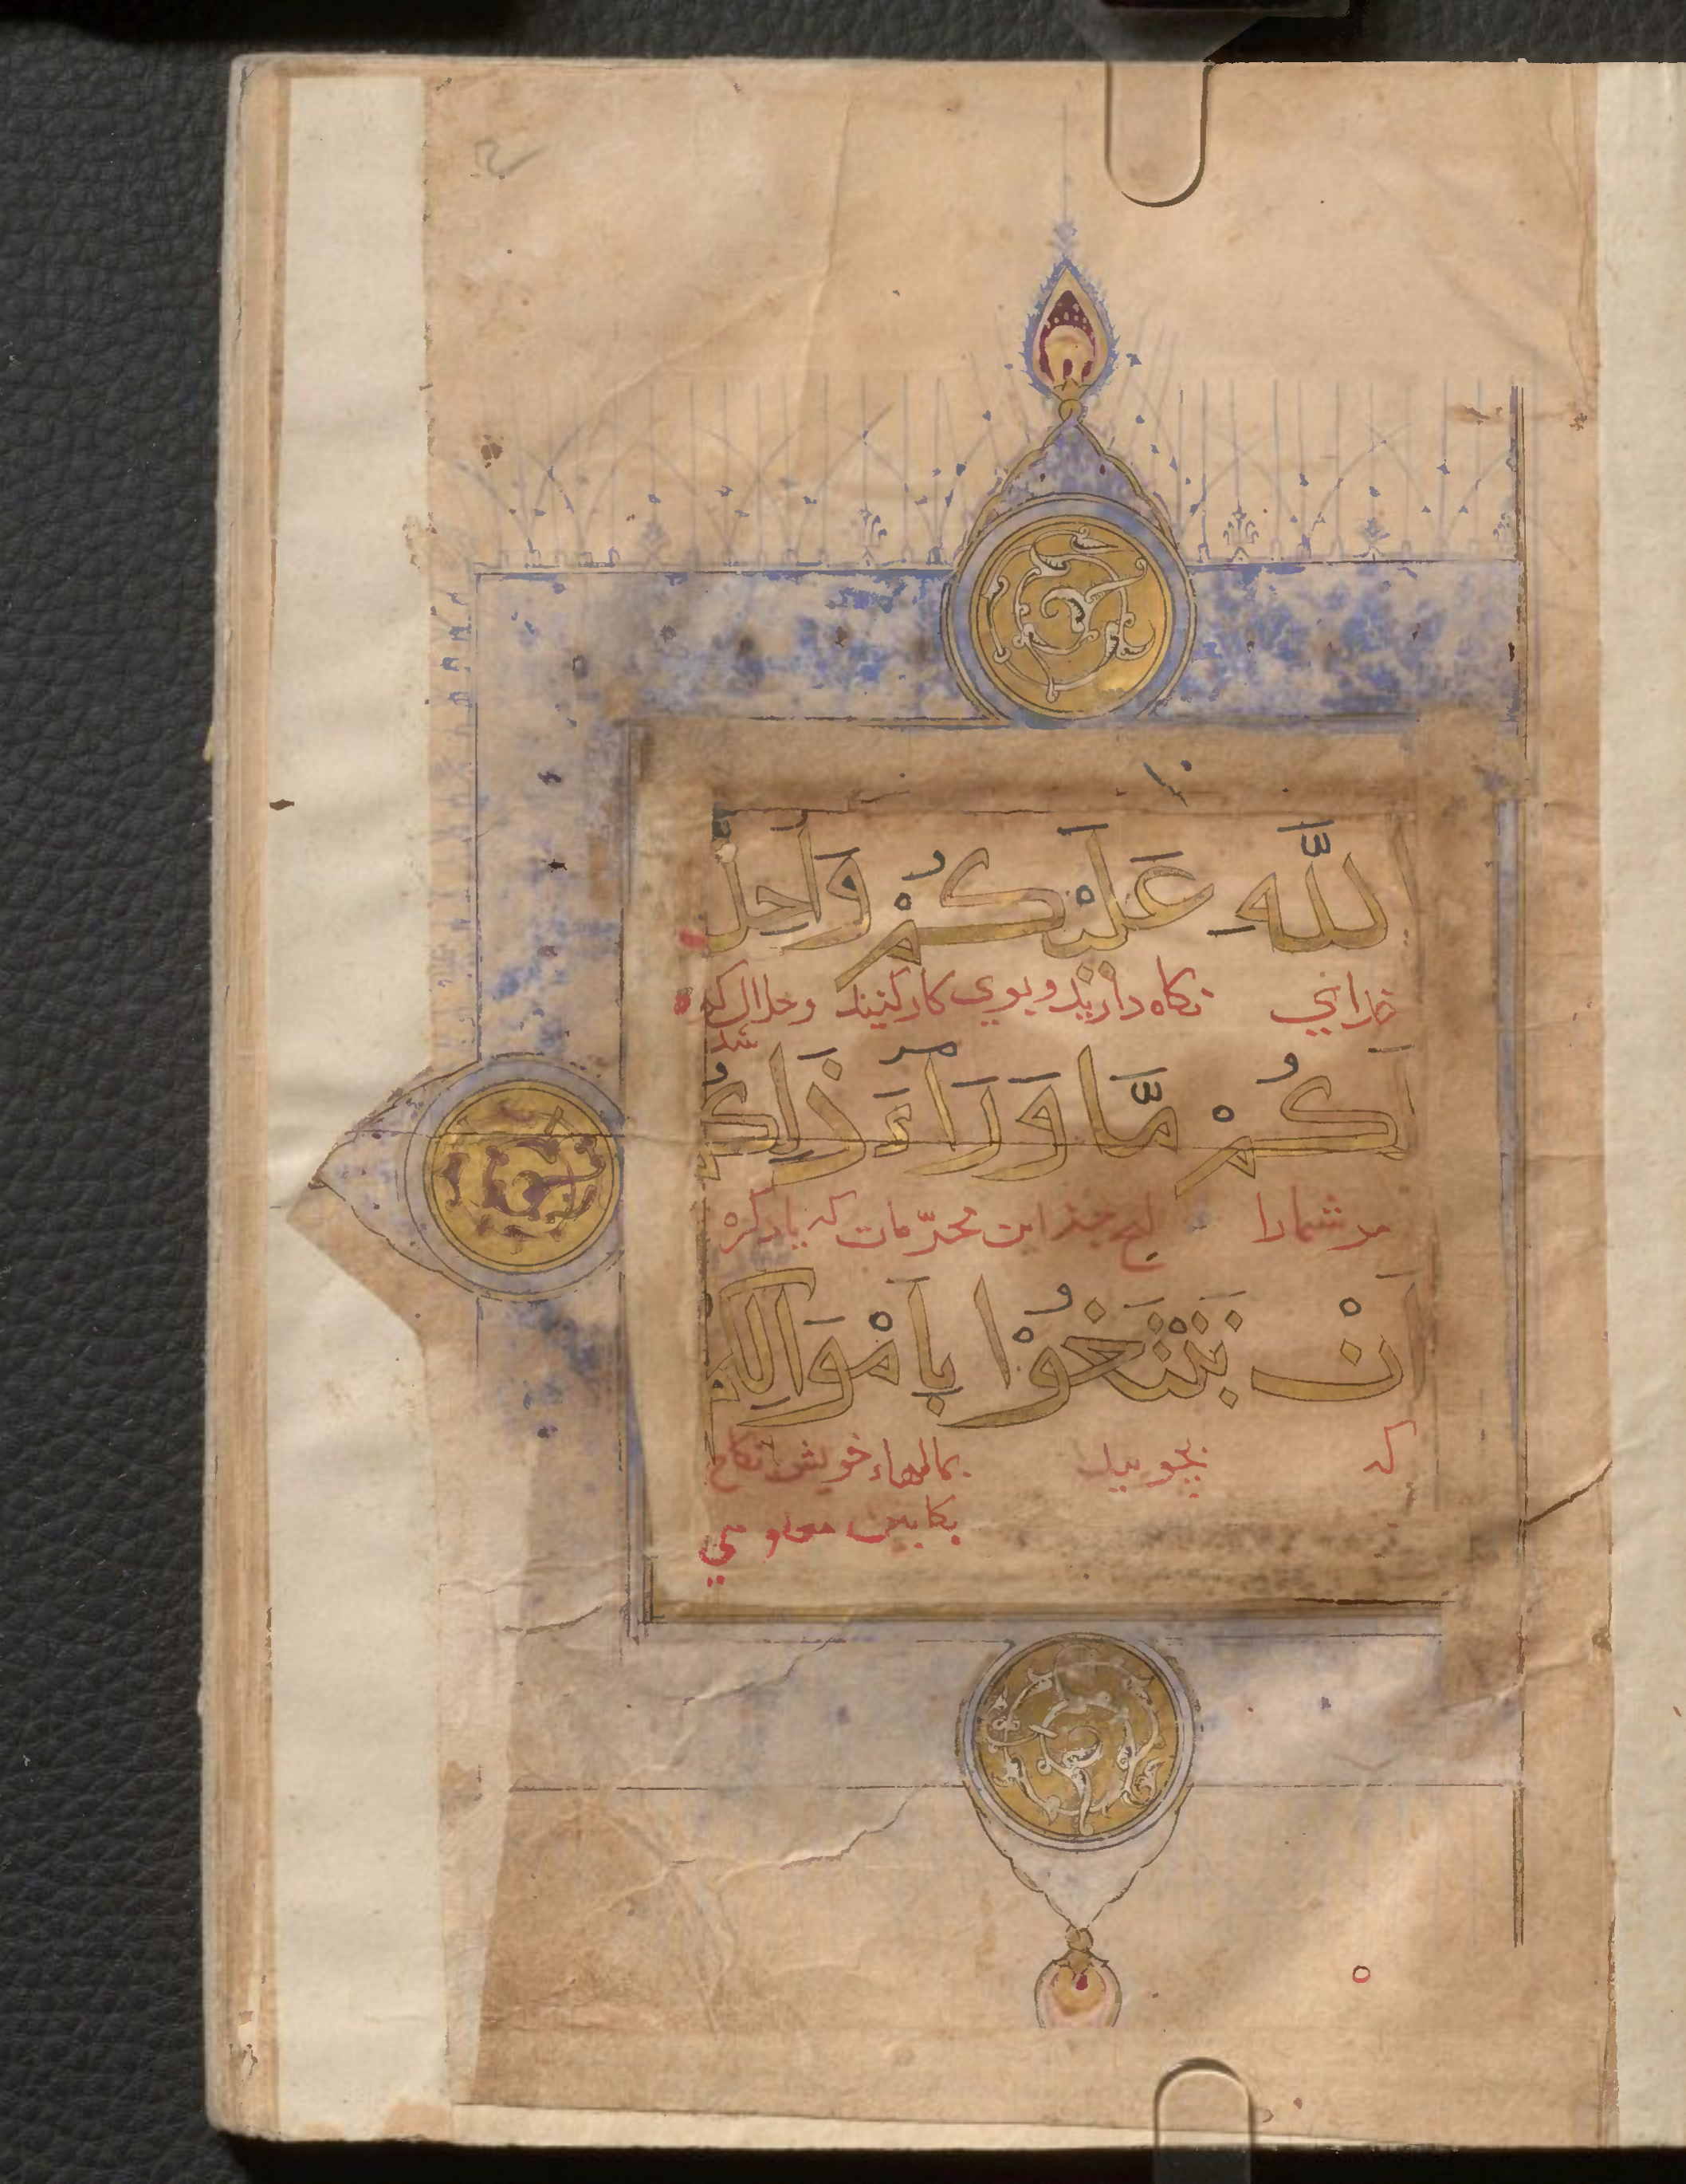 اللَّهِ عَلَيْكُمْ وَأَحَلَّ
خدائي نكاه داريد و بوي كار كنيد و حلال كرده
شد
لَكُمْ مَّا وَرَاءَ ذَالِكُمْ
مر شما را این محرّمات كه ياد كرد
اَنْ تَبْتَغُوْا بِاَمْوَالِكُمْ
كه بجوييد بمالهاء خويش نكاح
بكابين معلومي